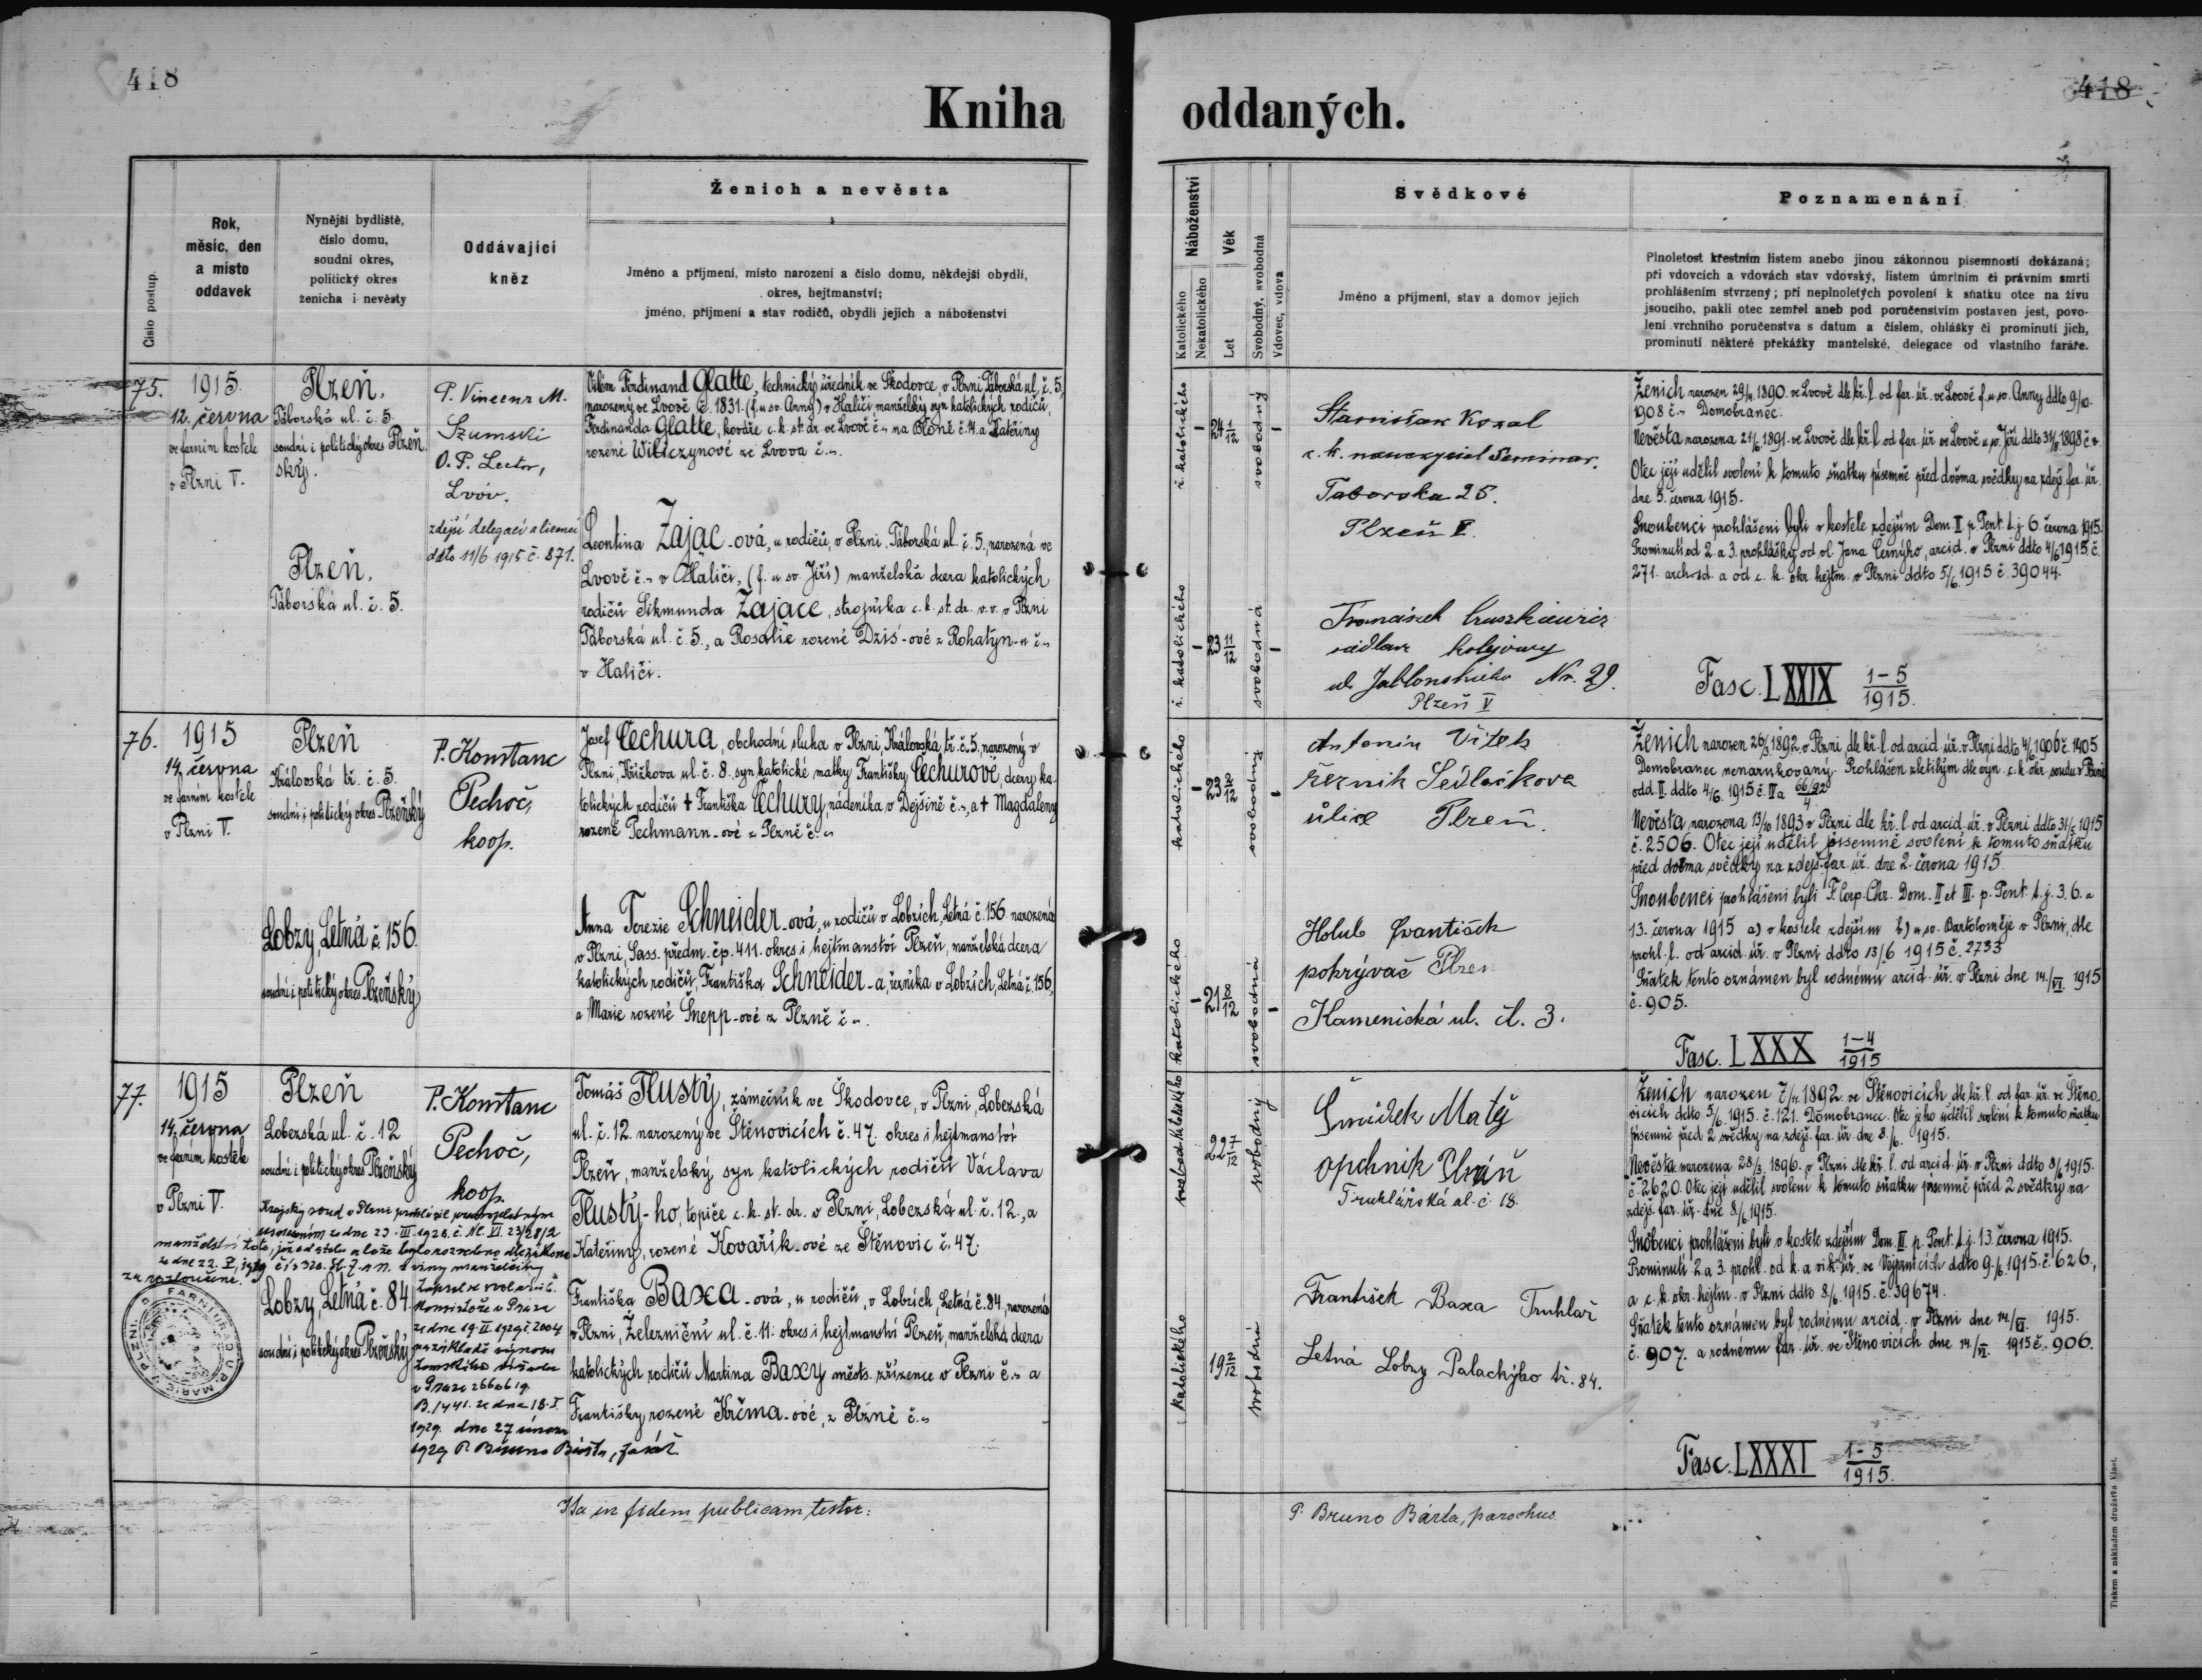 418
418
Kniha oddaných.
Číslo postup.
Rok,
měsíc, den
a místo
oddavek
Nynější bydliště,
číslo domu,
soudní okres,
politický okres
ženicha i nevěsty
Oddávající
kněz
Ženich a nevěsta
Jméno a příjmení, místo narození a číslo domu, někdejší obydlí,
okres, hejtmanství;
jméno, příjmení a stav rodičů, obydlí jejich a náboženství
Náboženství
Katolického
Nekatolického
Věk
Let
Svobodný, svobodná
Vdovec, vdova
Svědkové
Jméno a příjmení, stav a domov jejich
Poznamenání
Plnoletost křestním listem anebo jinou zákonnou písemností dokázaná;
při vdovcích a vdovách stav vdovský, listem úmrtním či právním smrti
prohlášením stvrzený; při neplnoletých povolení k sňatku otce na živu
jsoucího, pakli otec zemřel aneb pod poručenstvím postaven jest, povo-
lení vrchního poručenstva s datum a číslem, ohlášky či prominutí jich,
prominutí některé překážky manželské, delegace od vlastního faráře.
75.
1915.
12. června
ve farním kostele
v Plzni V.
Plzeň.
Táborská ul. č. 5.
soudní i politický okres Plzeň
ský.
Plzeň.
Táborská ul. č. 5.
P. Vincenz M.
Szumski
O. P. Lector,
Lvóv.
zdejší delegací a licencí
ddto 11/6 1915 č. 871.
Vilém Ferdinand Glatte, technický úředník ve Škodovce, v Plzni Táborská ul. č. 5,
narozený ve Lvově č. 1831. (f. u sv. Anny) v Haliči manželský syn katolických rodičů,
Ferdinanda Glatte, kovdře c. k. st. dr. ve Lvově č.~ na Bloně č. 4. a Kateřiny
rozené Wilczynové ze Lvova č.~.
Leontina Zając-ová, u rodičů, v Plzni, Táborská ul. č. 5., narozená ve
Lvově č.~ v Haliči, (f. u sv. Jiří) manželská dcera katolických
rodičů Sikmunda Zające, strojníka c. k. st. dr. v. v. v Plzni
Táborská ul. č. 5., a Rosalie rozené Dziś-ové z Rohatyn-u č.~
v Haliči.
ř. katolického
24 1/12
svobodný
ř. katolického
23 11/12
svobodná
Stanisław Kozal
c. k. nauczyciel Seminar.
Taborska 25.
Plzeň V.
ul. Jablonského Nr. 29.
Plzeň V
Ženich narozen 29/4 1890. ve Lvově dle kř. l. od far. úř. ve Lvově f. u sv. Anny ddto 9/10.
1908 č.~ Domobranec.
Nevěsta narozena 21/6 1891. ve Lvově dle kř. l. od far. úř. ve Lvově u sv. Jiří ddto 31/8 1898 č. ~
Otec její udělil svolení k tomuto sňatku písemně před dvěma svědky na zdejš. far. úř.
dne 5. června 1915.
Snoubenci prohlášeni byli v kostele zdejším Dom. II p. Pent. t. j. 6. června 1915.
Prominutí od 2. a 3. prohlášky od ol. Jana Černýho, arcid. v Plzni ddto 4/6 1915. č.
271. archid. a od c. k. okr. hejtm. v Plzni ddto 5/6 1915 č. 39044.
Fasc. LXXIX 1-5/1915.
76.
1915
14. června
ve farním kostele
v Plzni V.
Plzeň
Královská tř. č. 5.
soudní i politický okres Plzeňský
Lobzy, Letná č. 156.
soudní i politický okres Plzeňský
P. Konstanc
Pechoč,
koop.
Josef Čechura, obchodní sluha v Plzni, Královská tř. č. 5., narozený v
Plzni, Křížkova ul. č. 8. syn katolické matky Františky Čechurové, dcery ka-
tolických rodičů † Františka Čechury, nádeníka v Dejšině č.~, a † Magdaleny
rozené Pechmann-ové z Plzně č.~
Anna Terezie Schneider-ová, u rodičů v Lobzích, Letná č. 156. narozená
v Plzni, Sass. předm. čp. 411. okres i hejtmanství Plzeň, manželská dcera
katolických rodičů, Františka Schneider-a, řezníka v Lobzích, Letná č. 156,
a Marie rozené Šnepp-ové z Plzně č~.
katolického
23 2/12
svobodný
katolického
21 8/12
svobodná
Antonín Vítek
řezník Sedláčkova
ulice Plzeň.
Holub František
pokrývač Plzen
Kamenická ul. čl. 3.
Ženich narozen 26/3 1892. v Plzni, dle kř. l. od arcid. úř. v Plzni ddto 4/6 1906 č. 1405
Domobranec nenarukovaný. Prohlášen zletilým dle výn. c. k. okr. soudu v Plzni
odd. II. ddto 4/6. 1915 č. IIa 66/92/4.
Nevěsta narozena 13/10 1893 v Plzni dle kř. l. od arcid. úř. v Plzni ddto 31/5 1915
č. 2506. Otec její udělil písemně svolení k tomuto sňatku
před dvěma svědky na zdejš. far. úř. dne 2. června 1915
Snoubenci prohlášeni byli F. Corp. Chr. Dom. II et III. p. Pent. t. j. 3. 6. a
13. června 1915 a) v kostele zdejším b) u sv. Bartoloměje v Plzni, dle
prohl. l. od arcid. úř. v Plzni ddto 13/6 1915 č. 2733
Sňatek tento oznámen byl rodnému arcid. úř. v Plzni dne 14./VI. 1915
č. 905.
Fasc. LXXX 1-4/1915
77.
1915
14. června
ve farním kostele
v Plzni V.
Plzeň
Lobezská ul. č. 12
soudní i politický okres Plzeňský
Lobzy, Letná č. 84.
soudní i politický okres Plzeňský
P. Konstanc
Pechoč,
koop.
Krajský soud v Plzni prohlásil pravoplatným
usnesením ze dne 23. III. 1928. č. Nc. VI. 23/28/2
manželství toto, již od stolu a lože bylo rozvedeno dle zákona
ze dne 22. V. 1919 čís. 320. Sb. z. a n. z viny manželčiny
za rozloučené.
Zapsal se svolením
Konsistoře v Praze
ze dne 19. II. 1929 č. 2004
na základě výnosu
Zemského úřadu
v Praze 26606 19.
B. 1441. ze dne 18. I.
1929. dne 27 února
1929 P. Bruno Bárta, farář
Tomáš Tlustý, zámečník ve Škodovce, v Plzni, Lobezská
ul. č. 12. narozený ve Štěnovicích č. 47. okres i hejtmanství
Plzeň, manželský syn katolických rodičů Václava
Tlustý-ho, topiče c. k. st. dr. v Plzni, Lobezská ul. č. 12., a
Kateřiny, rozené Kovařík-ové ze Štěnovic č. 47.
Františka Baxa-ová, u rodičů, v Lobzích, Letná č. 84, narozená
v Plzni, Železniční ul. č. 11. okres i hejtmanství Plzeň, manželská dcera
katolických rodičů Martina Baxy městs. zřízence v Plzni č.~ a
Františky rozené Krčma-ové, z Plzně č.~
22 7/12
svobodný
katolického
19 2/12
svobodná
Matěj
Truhlářská ul. č 18.
František Baxa Truhlař
Letná Lobzy Palackýho tř. 84.
Ženich narozen 7/11. 1892. ve Štěnovicích dle kř. l. od far. úř. ve Štěno-
vicích ddto 5/6. 1915. č. 121. Domobranec. Otec jeho udělil svolení k tomuto sňatku
písemně před 2 svědky na zdejš. far. úř. dne 8./6. 1915.
Nevěsta narozena 28/3. 1896. v Plzni dle kř. l. od arcid. úř. v Plzni ddto 8/6 1915.
č. 2620. Otec její udělil svolení k tomuto sňatku písemně před 2 svědky na
zdejš. far. úř. dne 8/6 1915.
Snoubenci prohlášeni byli v kostele zdejším Dom. III. p. Pent. t. j. 13. června 1915.
Prominutí 2. a 3. prohl. od k. a. vik. úř. ve Vejprnicích ddto 9./6. 1915. č. 626.,
a c. k. okr. hejtm. v Plzni ddto 8./6. 1915. č. 39674.
Sňatek tento oznámen byl rodnému arcid. v Plzni dne 14./VI. 1915.
č. 907. a rodnému far. úř. ve Štěnovicích dne 14./VI. 1915 č. 906.
Fasc. LXXXI 1-5/1915.
Ita in fidem publicam testor:
P. Bruno Bárta, parochus
Tiskem a nákladem družstva Vlast.